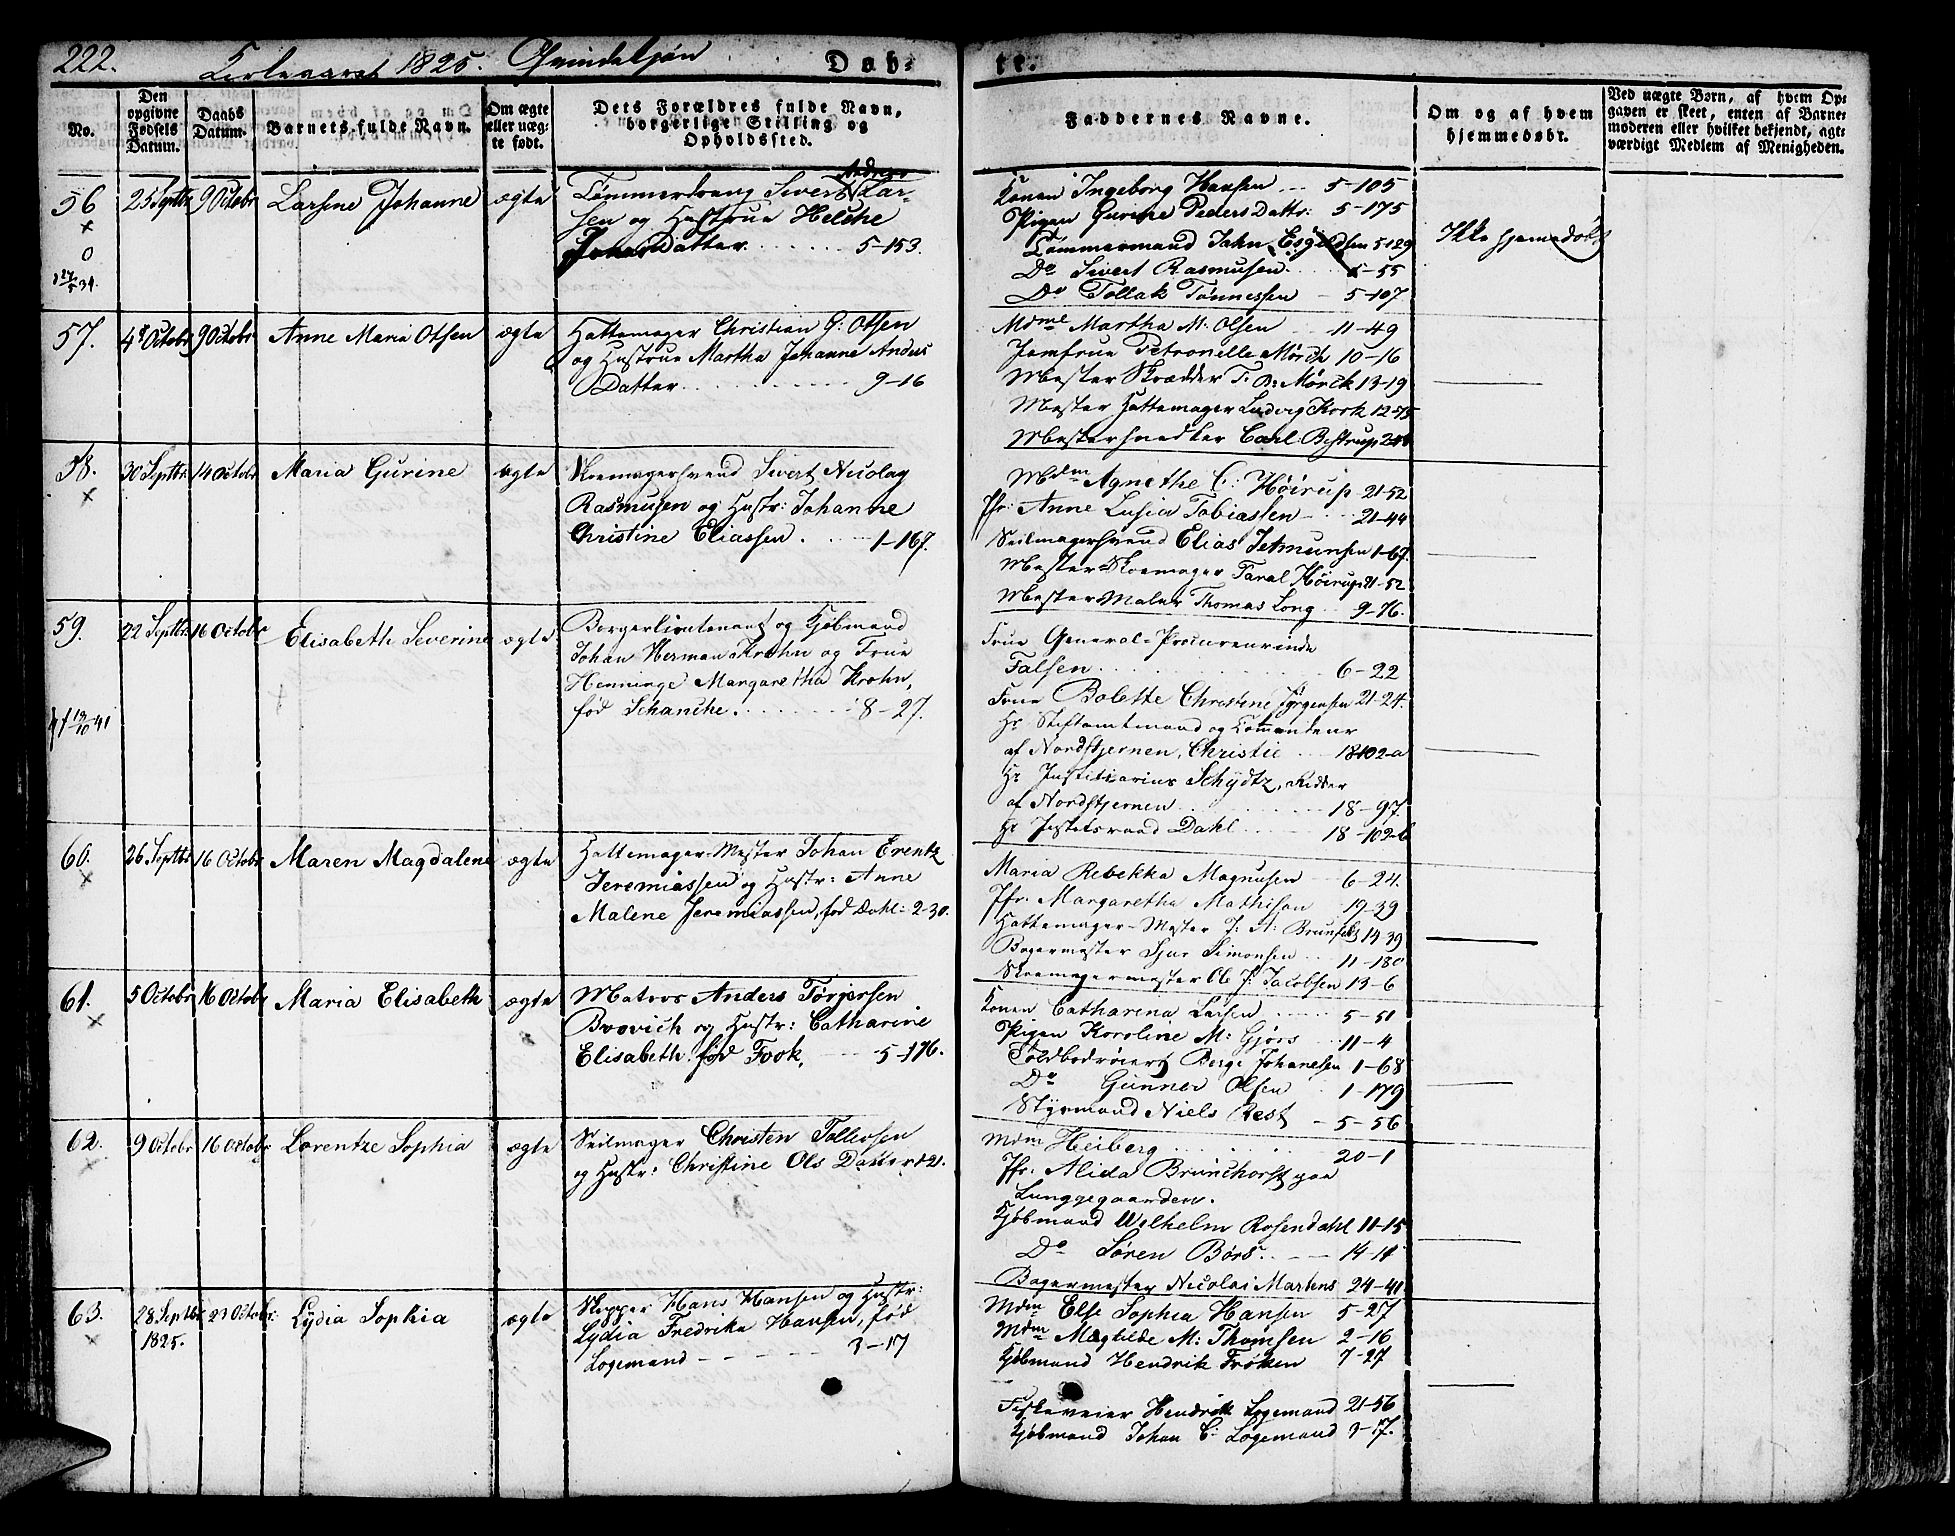 222. Kirkeaaret 1825. Qvindekjøn Døb-
te.
No.
Den opgivne Fødsels Datum.
Daabs Datum.
Barnets fulde Navn.
Om ægte eller uægte født.
Dets Forældres fulde Navn, borgerlige Stilling og Opholdssted.
Faddernes Navne.
Om og af hvem hjemmedøbt.
Ved uægte Børn, af hvem Op-
gaven er skeet, enten af Barne-
moderen eller hvilket bekjendt, agt-
værdigt Medlem af Menigheden.
56 25 Septbr 9 Octobr Larsine Johanne ægte
Andreas
Tømmermand Sivert Lar-
sen og Hustrue Helche
Johans Datter 5-153.
Konen Ingeborg Hansen 5-105
Pigen Gurine Peders Dattr: 5-175
Tømmermand John Esgildsen 5-129
Do Sivert Rasmusen 5-55
Do Tollak Tønnessen 5-107
Ikke hjemmedøbt
57. 4de Octobr 9 Octobr Anne Maria Olsen ægte
Hattemager Christian G: Olsen
og Hustrue Martha Johanne Anders
Datter 9-16
Mdme Martha M: Olsen 11-49
Jomfrue Petronelle Mørch 10-16
Mester Skrædder T. B: Mørch 13-19
Mester Hattemager Ludvig Kork 12-75
Mestersvedker Carl: Bistrup
58. 30 Septbr 14 Octobr Maria Gurine ægte
Skomagersvend Sivert Nicolay
Rasmusen og Hustr: Johanne
Christine Eliassen. 1-167.
Mdm Agnethe C: Høirup 21-52
Jfr: Anne Lusia Tobiassen 21-44
Seilmagersvend Elias Jetmunsen 1-67.
Mester Skomager Taral Høirup 21-52
Mester Maler Thomas Long 9-76.
59. 22 Septbr 16 Octobr Elisabeth Severine ægte
Borgerlieutenant og Kjøbmand
Johan Herman Krohn og Frue
Henninge Margaretha Krohn,
fød Schanche. 8-27.
Frue General-Procureurinde
Falsen 6-22
Frue Bolette Christine Jørgensen 21-24.
Hr Stiftamtmand og Commandeur
af Nordstjernen, Christie 18-102-a
Hr Justitiarius Schydtz, Ridder
af Nordstjernen 18-97.
Hr Justitsraad Dahl 18-102-b
60. 26 Septbr 16 Octobr Maren Magdalene ægte
Hattemager-Mester Johan Erentz
Jeremiassen og Hustr: Anne
Malene Jeremiassen, fød Dahl: 2-30.
Maria Rebekka Magnusen 6-24.
Jfr: Margaretha Mathison 19-39
Hattemager-Mester J: A: 14-39
Bagermester Sjur Simonsen 11-180
Skomagermester Ole J: Jacobsen 13-6
61. 5 Octobr 16 Octobr Maria Elisabeth ægte
Matros Anders Tørgersen
Brovich og Hustr: Catharine
Elisabeth fød Fook. 5-176.
Konen Catharina Larsen 5-51
Pigen Karoline M: Gjørs 11-4
Toldbodroiert Berge Johanesen 1-68
Do Gunner Olsen 1-179
Styrmand Niels Rest 5-56
62. 9 Octobr 16 Octobr Lorentze Sophia ægte
Seilmager Christen Tollevsen
og Hustr: Christine Ols Datter
Mdm Heiberg 20-1
Jfr: Alida Brunchorst paa
Lunggegaarden.
Kjøbmand Wilhelm Rosendahl 11-15
Do Søren Børs 14-11
Bagermester Nicolai Martens 24-41
63. 28 Septbr 1825. 23 Octobr. Lydia Sophia ægte
Skipper Hans Hansen og Hustr:
Lydia Fredrika Hansen, fød
Logemand 3-17
Mdm Else Sophia Hansen 5-27
Mdm Magtilde M: Thomsen 2-16
Kjøbmand Hendrik Frøken 7-27
Fiskeveier Hendrik Logemand 21-56
Kjøbmand Johan C: Logemand 3-17.